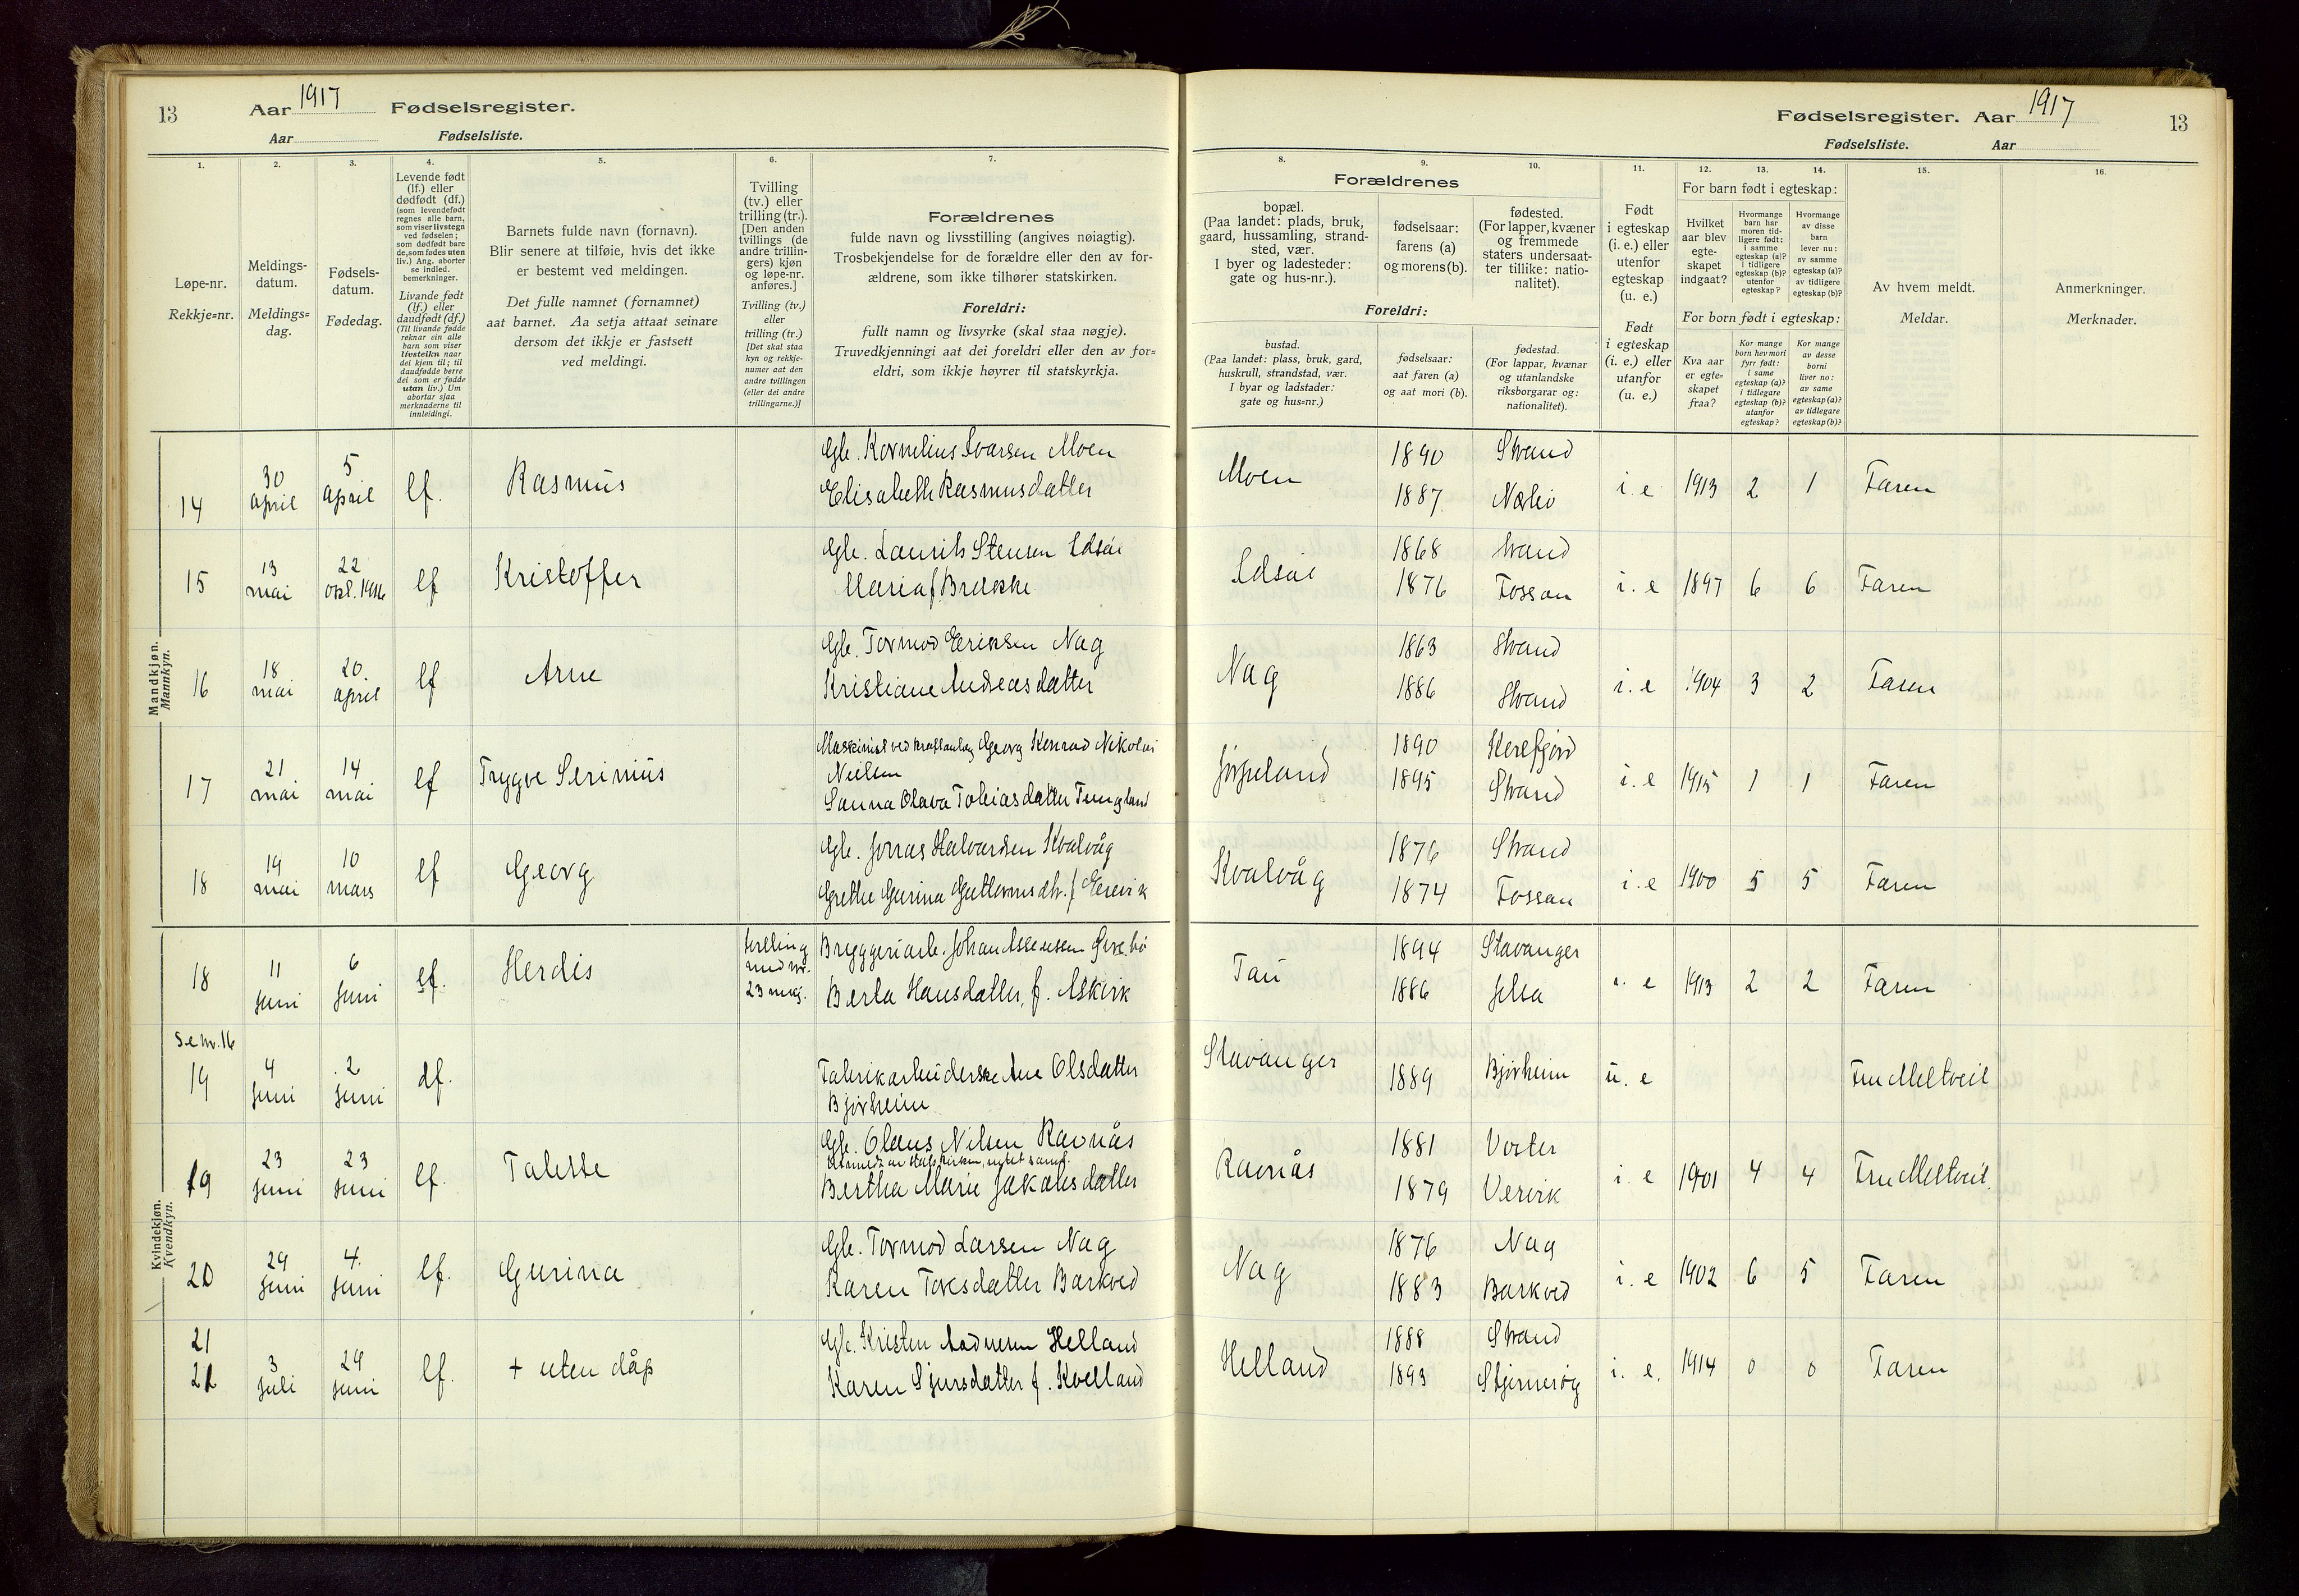 13 Aar 1917 Fødselsregister.
Aar Fødselsliste.
1. 2. 3. 4. 5. 6. 7.
Løpe-nr.
Rekkje=nr.
Meldings-
datum.
Meldings=
dag.
Fødsels-
datum.
Fødedag.
Levende født
(lf.) eller
dødfødt (df.)
(som levendefødt
regnes alle barn,
som viser livstegn
ved fødselen;
som dødfødt bare
de, som fødes uten
liv.) Ang. aborter
se indled.
bemerkninger.
Livande født
(lf.) eller
daudfødt (df.)
(Til livande fødde
reknar ein alle
barn som viser
livsteikn naar
dei kjem til; til
daudfødde berre
dei som er fødde
utan liv.) Um
abortar sjaa
merknaderne til
innleidingi.
Barnets fulde navn (fornavn).
Blir senere at tilføie, hvis det ikke
er bestemt ved meldingen.
Det fulle namnet (fornamnet)
aat barnet. Aa setja attaat seinare
dersom det ikkje er fastsett
ved meldingi.
Tvilling
(tv.) eller
trilling (tr.).
[Den anden
tvillings (de
andre trillin-
gers) kjøn
og løpe-nr.
anføres.]
Tvilling (tv.)
eller
trilling (tr.)
[Det skal staa
kyn og rekkje-
numer aat den
andre tvillingen
(eller dei andre
trillingarne.)]
Forældrenes
fulde navn og livsstilling (angives nøiagtig).
Trosbekjendelse for de forældre eller den av for-
ældrene, som ikke tilhører statskirken.
Foreldri:
fullt namn og livsyrke (skal staa nøgje).
Truvedkjenningi aat dei foreldri eller den av for=
eldri, som ikkje høyrer til statskyrkja.
Mandkjøn.
Mannkyn.
14 30 april 5 april lf. Rasmus
Gbr. Kornelius Ivarsen Moen
Elisabeth Rasmusdatter
15 13 mai 22 okt. 1916 lf Kristoffer
Gbr. Laurits Stensen Idsøe
Maria f Brække
16 18 mai 20. april lf Arne
Gbr. Tormod Eeriksen Nag
Kristiane Andreasdatter
17 21 mai 14 mai lf Trygve Serinius
Maskinist ved kraftanlæg Georg Konrad Nikolai
Nielsen
Sanna Olava Tobiasdatter Tungland
18 19 mai 10 mars lf Georg
Gbr. Jonas Halvardsen Kvalvåg
Grethe Gurina Guttormsdtr. f Eerevik
Kvindekjøn.
Kvendkyn.
18 11 juni 6 juni lf. Herdis
tvilling
med nr.
23 mkj.
Bryggeriarb. Johan Assensen
Berta Hansdatter, f. Askvik
Se nr. 16
19 4 juni 2 juni df.
Fabrikarbeiderske Ane Olsdatter
Bjørheim
19 23 juni 23 juni lf. Talette
Gbr. Olaus Nilsen Ravnås
utmeldt av statskirken, intet samf.
Bertha Marie Jakobsdatter
20 29 juni 4. juni lf. Gurina
Gbr. Tormod Larsen Nag
Karen Toresdatter Barkved
21
21 3 juli 29 juni lf. + uten dåp
Gbr. Kristen Aadnesen Helland
Karen Sjursdatter f. Kvelland
Fødselsregister. Aar 1917 13
Fødselsliste. Aar
8. 9. 10. 11. 12. 13. 14. 15. 16.
Forældrenes
bopæl.
(Paa landet: plads, bruk,
gaard, hussamling, strand-
sted, vær.
I byer og ladesteder:
gate og hus-nr.).
fødselsaar:
farens (a)
og morens (b).
fødested.
(For lapper, kvæner
og fremmede
staters undersaat-
ter tillike: natio-
nalitet).
Foreldri:
bustad.
(Paa landet: plass, bruk, gard,
huskrull, strandstad, vær.
I byar og ladstader:
gate og hus=nr.)
fødselsaar:
aat faren (a)
og aat mori (b).
fødestad.
(For lappar, kvænar
og utanlandske
riksborgarar og:
nationalitet).
Født
i egteskap
(i. e.) eller
utenfor
egteskap
(u. e.)
Født
i egteskap
(i. e.) eller
utanfor
(u. e.)
For barn født i egteskap:
Hvilket
aar blev
egte-
skapet
indgaat?
Hvormange
barn har
moren tid-
ligere født:
i samme
egteskap (a)?
i tidligere
egteskap (b)?
utenfor
egteskap?
Hvormange
av disse
barn
lever nu:
av samme
egteskap (a)?
av tidligere
egteskap (b)?
For born født i egteskap:
Kva aar
er egte=
skapet
fraa?
Kor mange
born hev mori
fyrr født:
i same
egteskap (a)?
i tidlegare
egteskap (b)?
utanfor
egteskap?
Kor mange
av desse
borni
liver no:
av same
egteskap (a)?
av tidlegare
egteskap (b)?
Av hvem meldt.
Meldar.
Anmerkninger.
Merknader.
Moen 1890 Strand
1887 Nærbø i. e 1913 2 1 Faren
Idsøe 1868 Strand
1876 Fossan i. e 1897 6 6 Faren
Nag 1863 Strand
1886 Strand i. e 1904 3 2 Faren
Jørpeland 1890
1895 Strand i. e 1915 1 1 Faren
Kvalvåg 1876 Strand
1874 Fossan i. e 1900 5 5 Faren
Tau 1894 Stavanger
1886 Jelsa i. e 1913 2 2 Faren
Stavanger
1889 Bjørheim u. e Fru Meltveit
Ravnås 1881
1879 i. e 1901 4 4 Fru Meltveit.
Nag 1876 Nag
1883 Barkved i. e 1902 6 5 Faren
Helland 1888 Strand
1893 Stjernerøy i. e. 1914 0 0 Faren